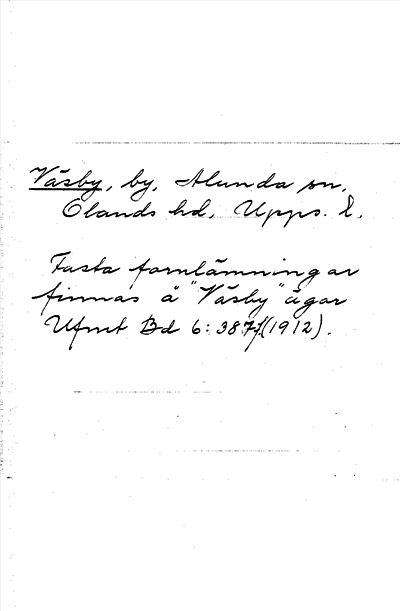 Väsby, by, Alunda sn.
Olands hd, Upps. l.
Fasta fornlämningar
finnas å "Väsby" ägor
Ufmt Bd 6: 387f(1912).